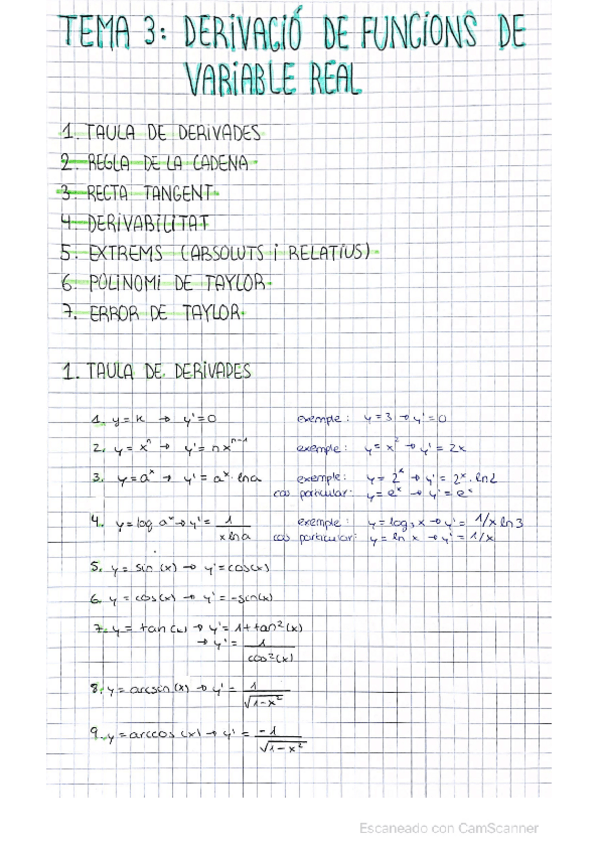 TEMA 3: DERIVACIÓ DE FUNCIONS DE
VARIABLE REAL
1. TAULA DE DERIVADES
2. REGLA DE LA CADENA
3. RECTA TANGENT
4. DERIVABILITAT
5. EXTREMS (ABSOLUTS i RELATIUS)
6. POLINOMI DE TAYLOR
7. ERROR DE TAYLOR
1. TAULA DE DERIVADES
1. y = k → y' = 0 exemple: y = 3 → y' = 0
2. y = xⁿ → y' = nxⁿ⁻¹ exemple: y = x² → y' = 2x
3. y = aˣ → y' = aˣ · ln a exemple: y = 2ˣ → y' = 2ˣ · ln2
cas particular: y = eˣ → y' = eˣ
4. y = log aˣ → y' = 1 / x ln a exemple: y = log₃ x → y' = 1/x ln 3
cas particular: y = ln x → y' = 1/x
5. y = sin (x) → y' = cos(x)
6. y = cos(x) → y' = -sin(x)
7. y = tan (x) → y' = 1 + tan²(x)
→ y' = 1 / cos²(x)
8. y = arcsin (x) → y' = 1 / √1-x²
9. y = arccos (x) → y' = -1 / √1-x²
Escaneado con CamScanner